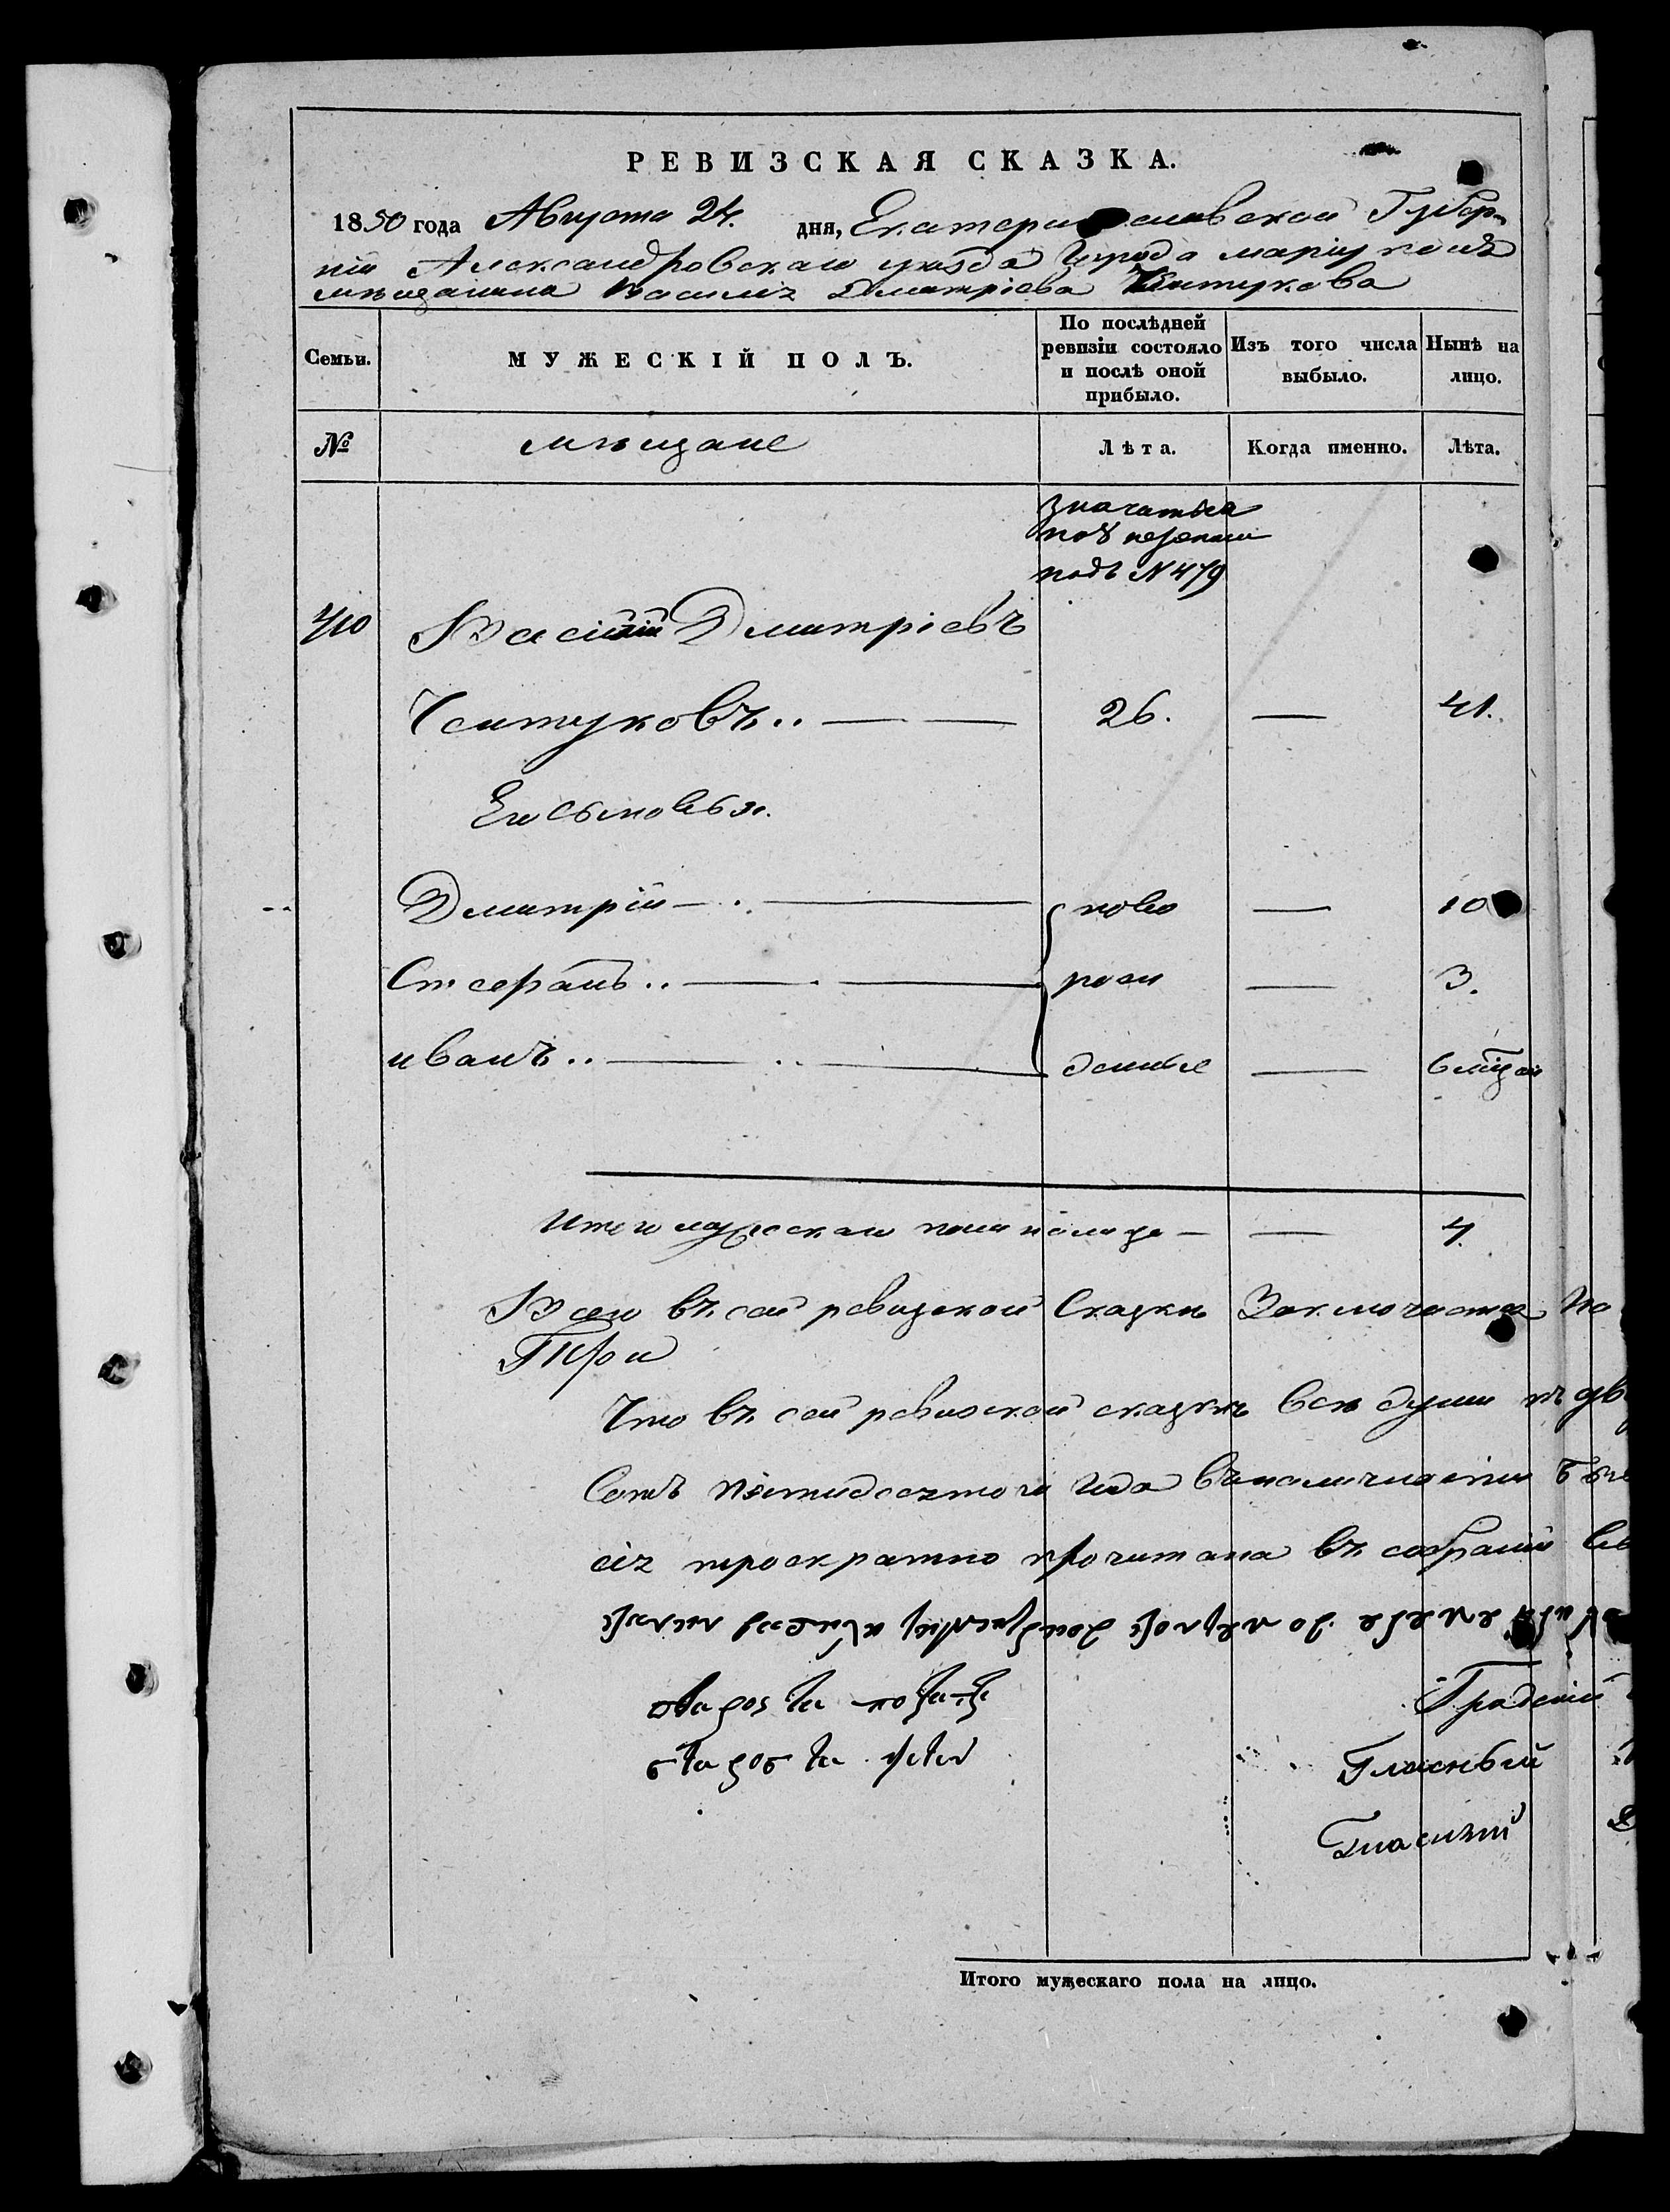 РЕВИЗСКАЯ СКАЗКА.
1850 года Августа 24. дня, Екатеринославской Губер-
ніи Александровскаго уезда города маріуполя
мѣщанина Василія Дмитріева Чентукова
Семьи.
МУЖЕСКІЙ ПОЛЪ.
По послѣдней ревизіи состояло и послѣ оной прибыло.
Изъ того числа выбыло.
Нынѣ на лицо.
№
мѣщане
Лѣта.
Когда именно.
Лѣта.
значатся
подъ №479
410
Василій Дмитріевъ
Чентуковъ.. 26. — 41.
Его сыновья.
Дмитрій — ново — 10
Стефанъ.. рож — 3.
иванъ.. денные — 6 мѣцов
Итого мужескаго пола налице — — 4.
Всего въ сей ревизской Сказке Заключается на
Три
Что въ сей ревизской сказкѣ всѣ души къ
Сотъ пятидесятого года въ наличности
сія троекратно прочитана въ собраніи
Градскій
Гласный
Гласный
Итого мужескаго пола на лицо.